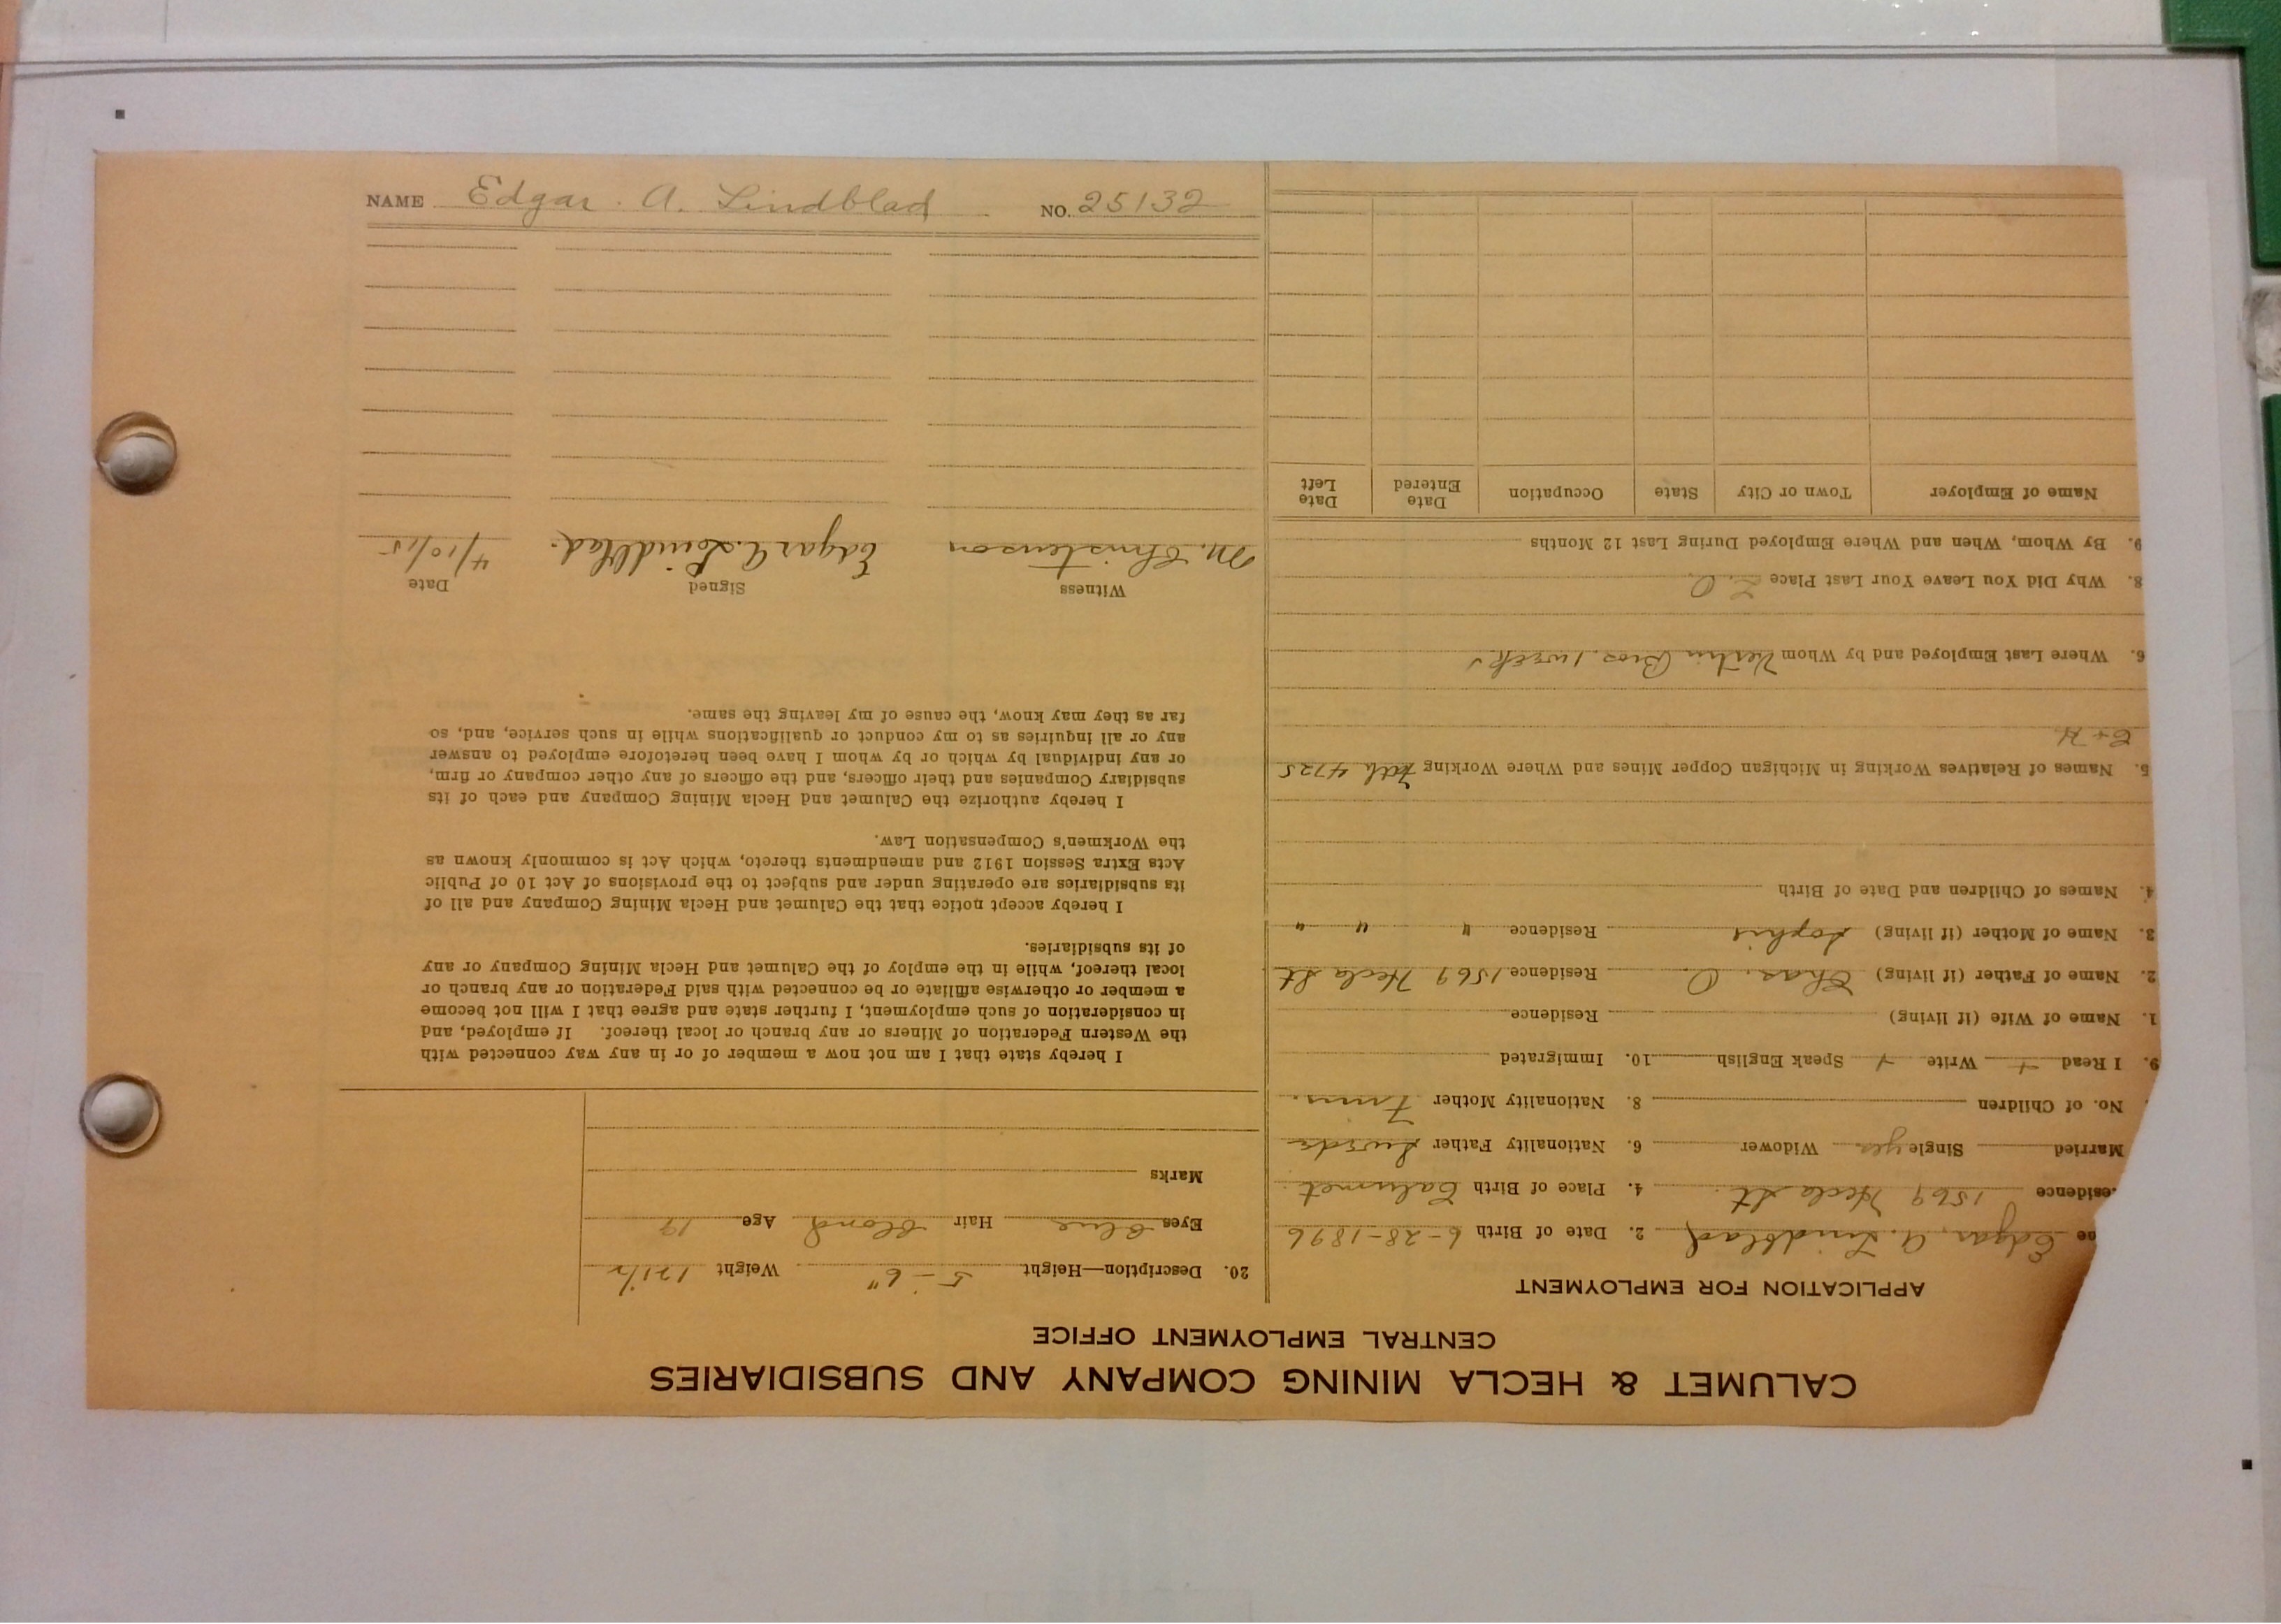 NAME Edgar. A. Lindblad NO. 25132
CALUMET & HECLA MINING COMPANY AND SUBSIDIARIES
CENTRAL EMPLOYMENT OFFICE
APPLICATION FOR EMPLOYMENT
Edgar, A. Lindblad 2. Date of Birth 6-28-1896
esidence 1569 Hecla St. 4. Place of Birth Calumet.
Married Single yes Widower 6. Nationality Father Swede
No. of Children 8. Nationality Mother Finn.
9. I Read + Write + Speak English 10. Immigrated
1. Name of Wife (if living) Residence
2. Name of Father (if living) Chas. O. Residence 1569 Hecla St
3. Name of Mother (if living) Sophie Residence " " "
4. Names of Children and Date of Birth
5. Names of Relatives Working in Michigan Copper Mines and Where Working 4725
C & H
6. Where Last Employed and by Whom Vertin Bros. 1 week
8. Why Did You Leave Your Last Place L. O.
9. By Whom, When and Where Employed During Last 12 Months
Name of Employer Town or City State Occupation Date Entered Date Left
20. Description—Height 5-6" Weight 121 1/2
Eyes Blue Hair Blond Age 19
Marks
I hereby state that I am not now a member of or in any way connected with
the Western Federation of Miners or any branch or local thereof. If employed, and
in consideration of such employment, I further state and agree that I will not become
a member or otherwise affiliate or be connected with said Federation or any branch or
local thereof, while in the employ of the Calumet and Hecla Mining Company or any
of its subsidiaries.
I hereby accept notice that the Calumet and Hecla Mining Company and all of
its subsidiaries are operating under and subject to the provisions of Act 10 of Public
Acts Extra Session 1912 and amendments thereto, which Act is commonly known as
the Workmen's Compensation Law.
I hereby authorize the Calumet and Hecla Mining Company and each of its
subsidiary Companies and their officers, and the officers of any other company or firm,
or any individual by which or by whom I have been heretofore employed to answer
any or all inquiries as to my conduct or qualifications while in such service, and, so
far as they may know, the cause of my leaving the same.
Witness Signed Date
M. Christenson Edgar A. Lindblad. 4/10/15